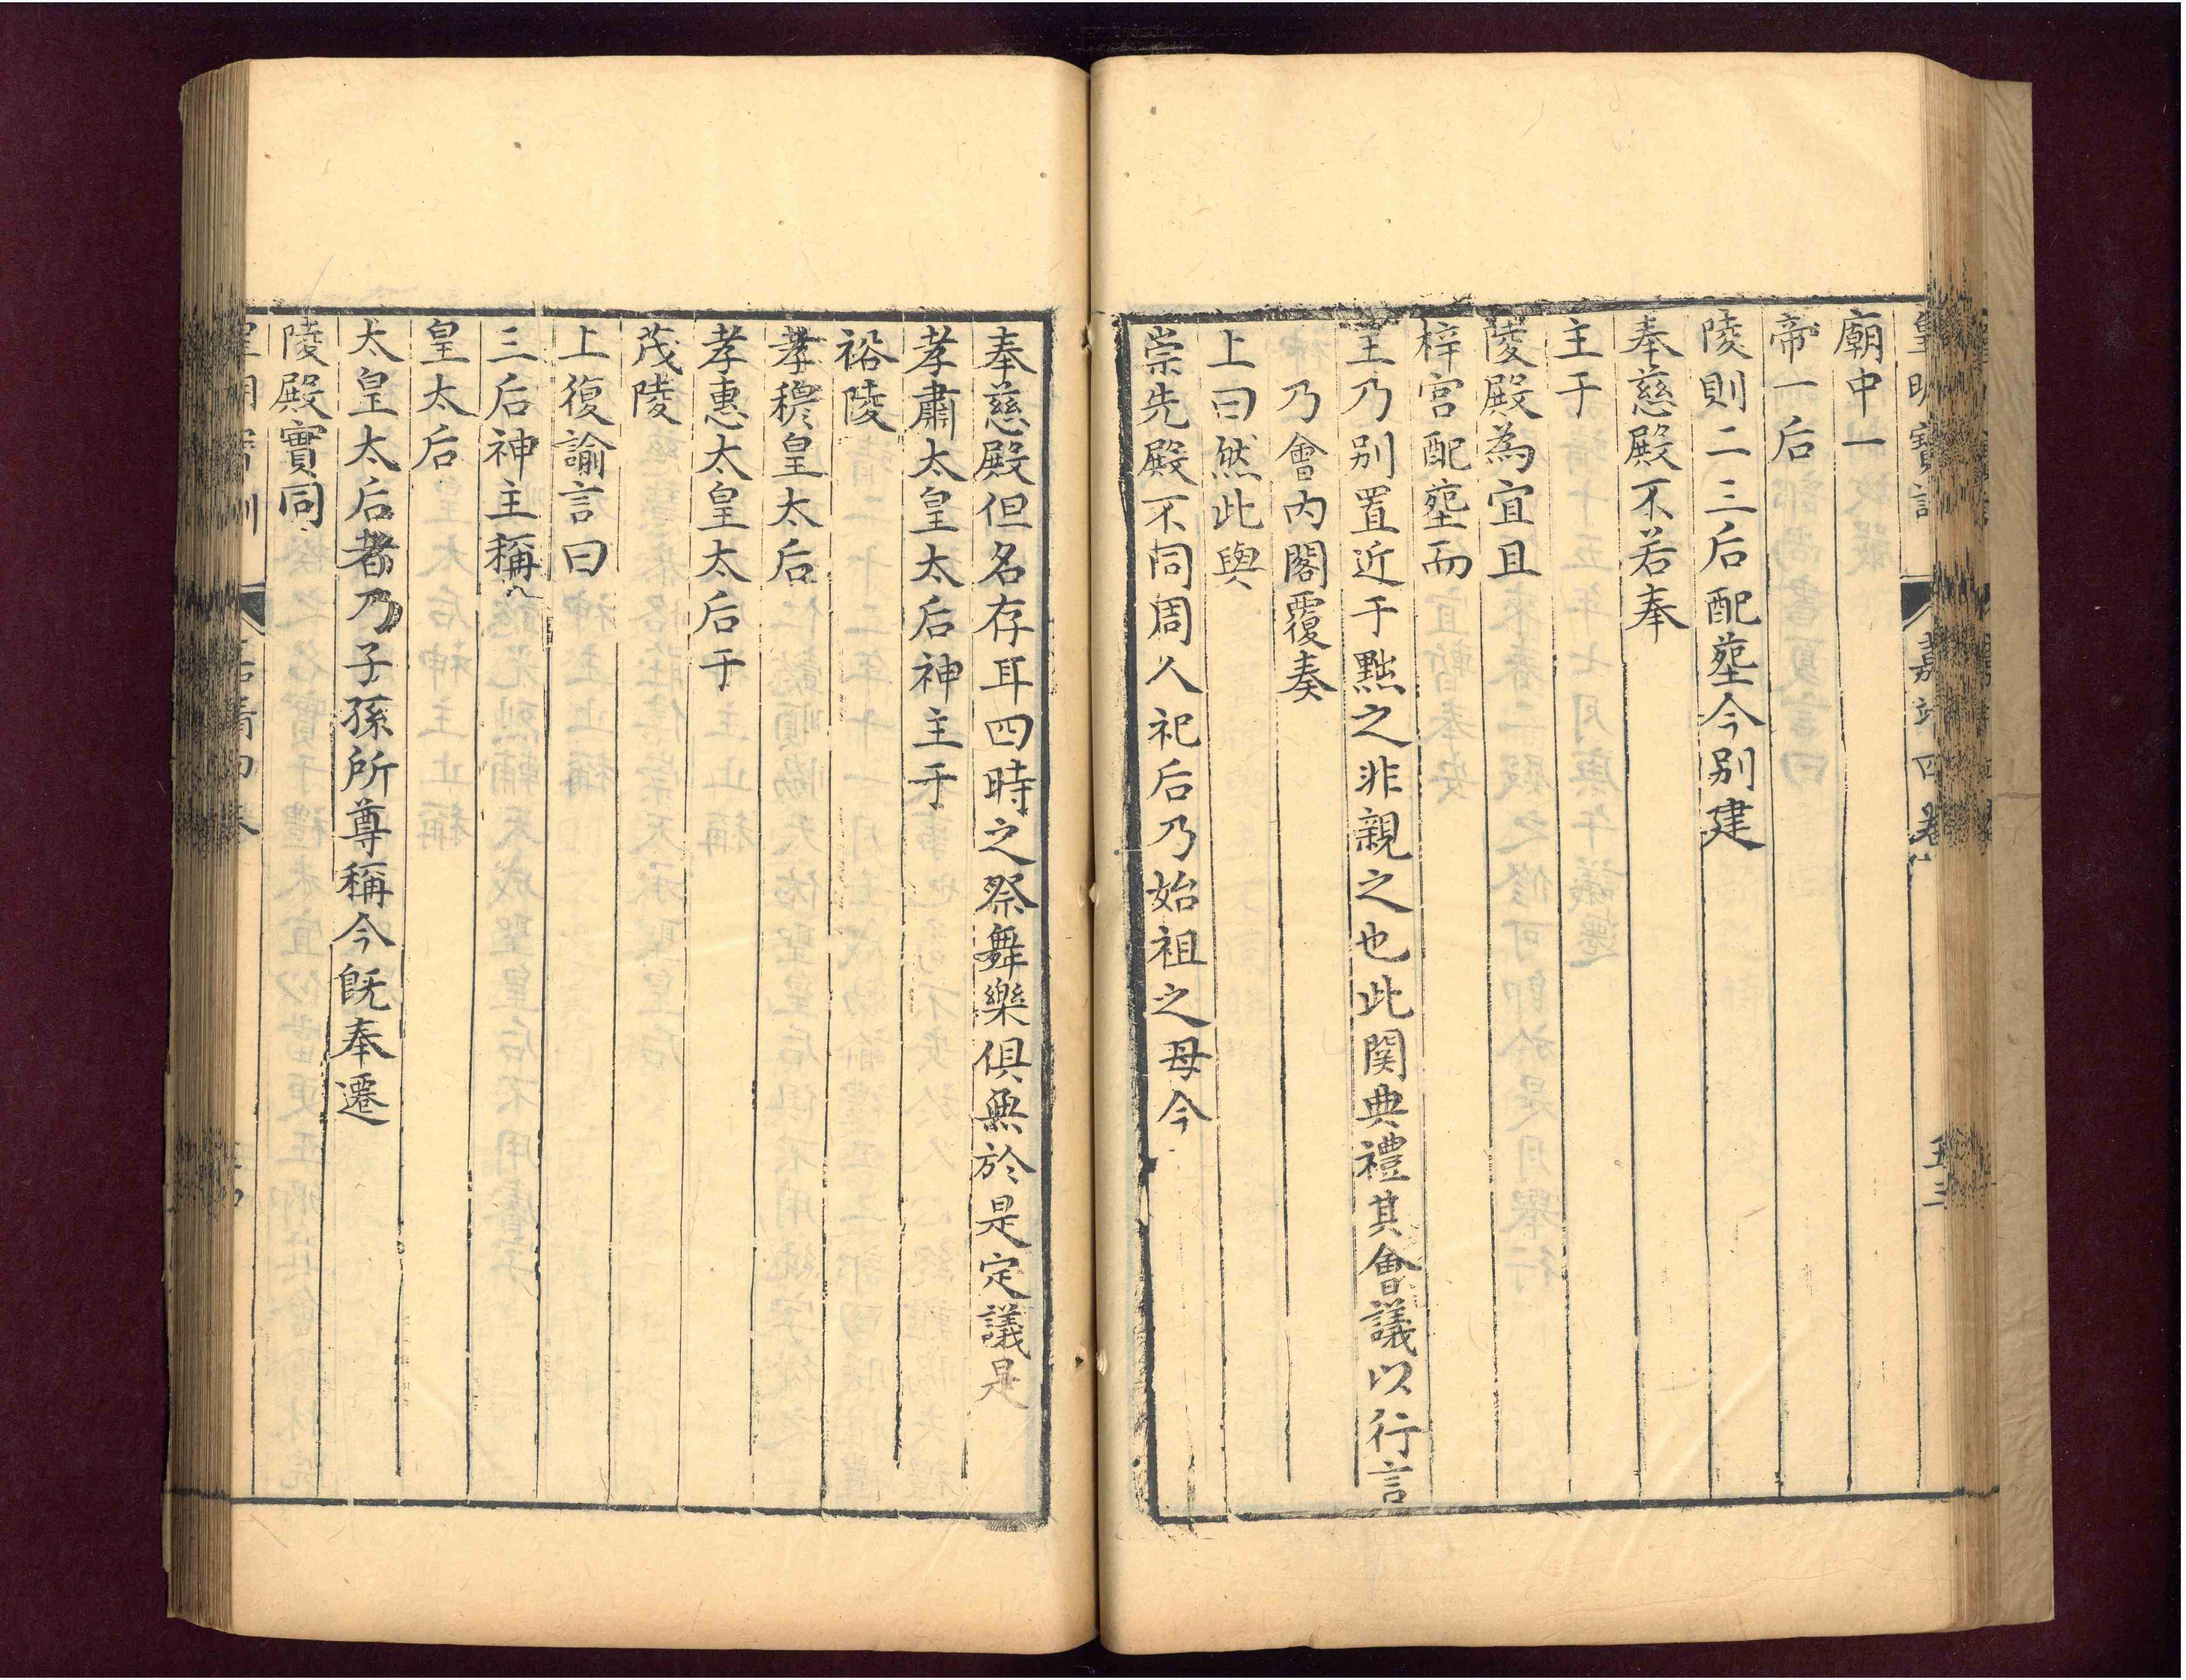 皇明寶訓
嘉靖四卷
廟中一
帝一后
陵則二三后配塟今别建
奉慈殿不若奉
主于
陵殿為宜且
梓宮配塟而
主乃别置近于黜之非親之也此関典禮其會議以行言
乃會内閣覆奏
上曰然此與
崇先殿不同周人祀后乃始祖之母今
奉慈殿但名存耳四時之祭舞樂俱無於是定議是
孝肅太皇太后神主于
裕陵
孝穆皇太后
孝惠太皇太后于
茂陵
上復諭言曰
三后神主稱
皇太后
太皇太后者乃子孫所尊稱今旣奉遷
陵殿實同